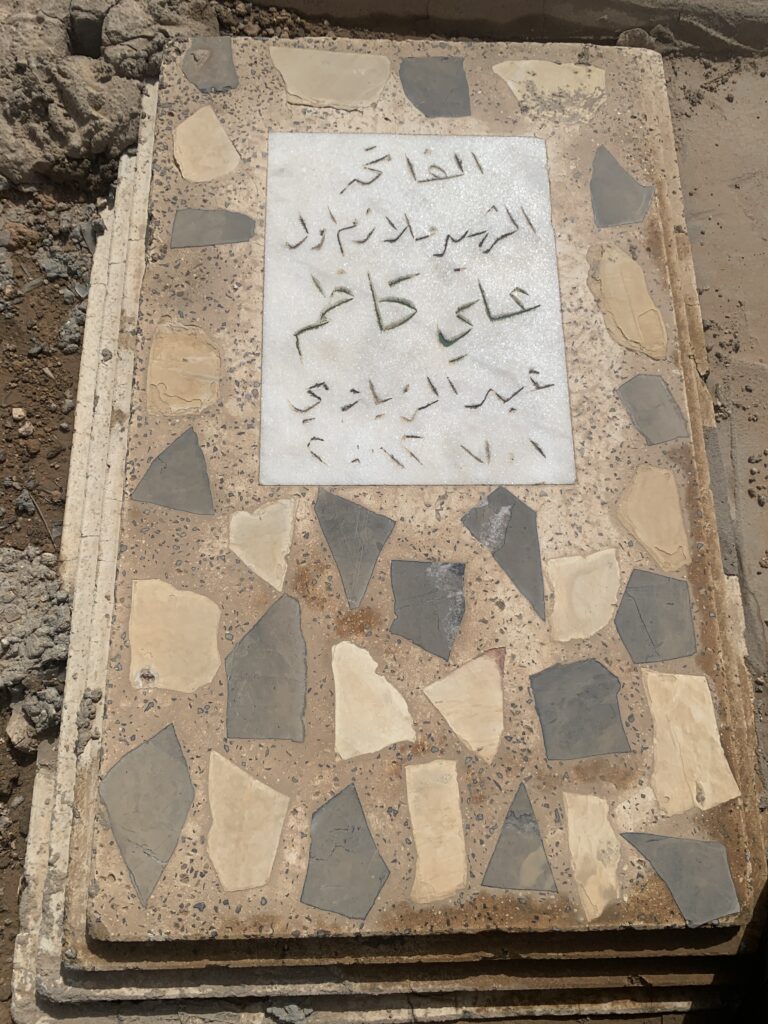 الفاتحة
الشهيد ملازم اول
علي كاظم
عبد الزيادي
٢٠١٢ ٧ ٠١